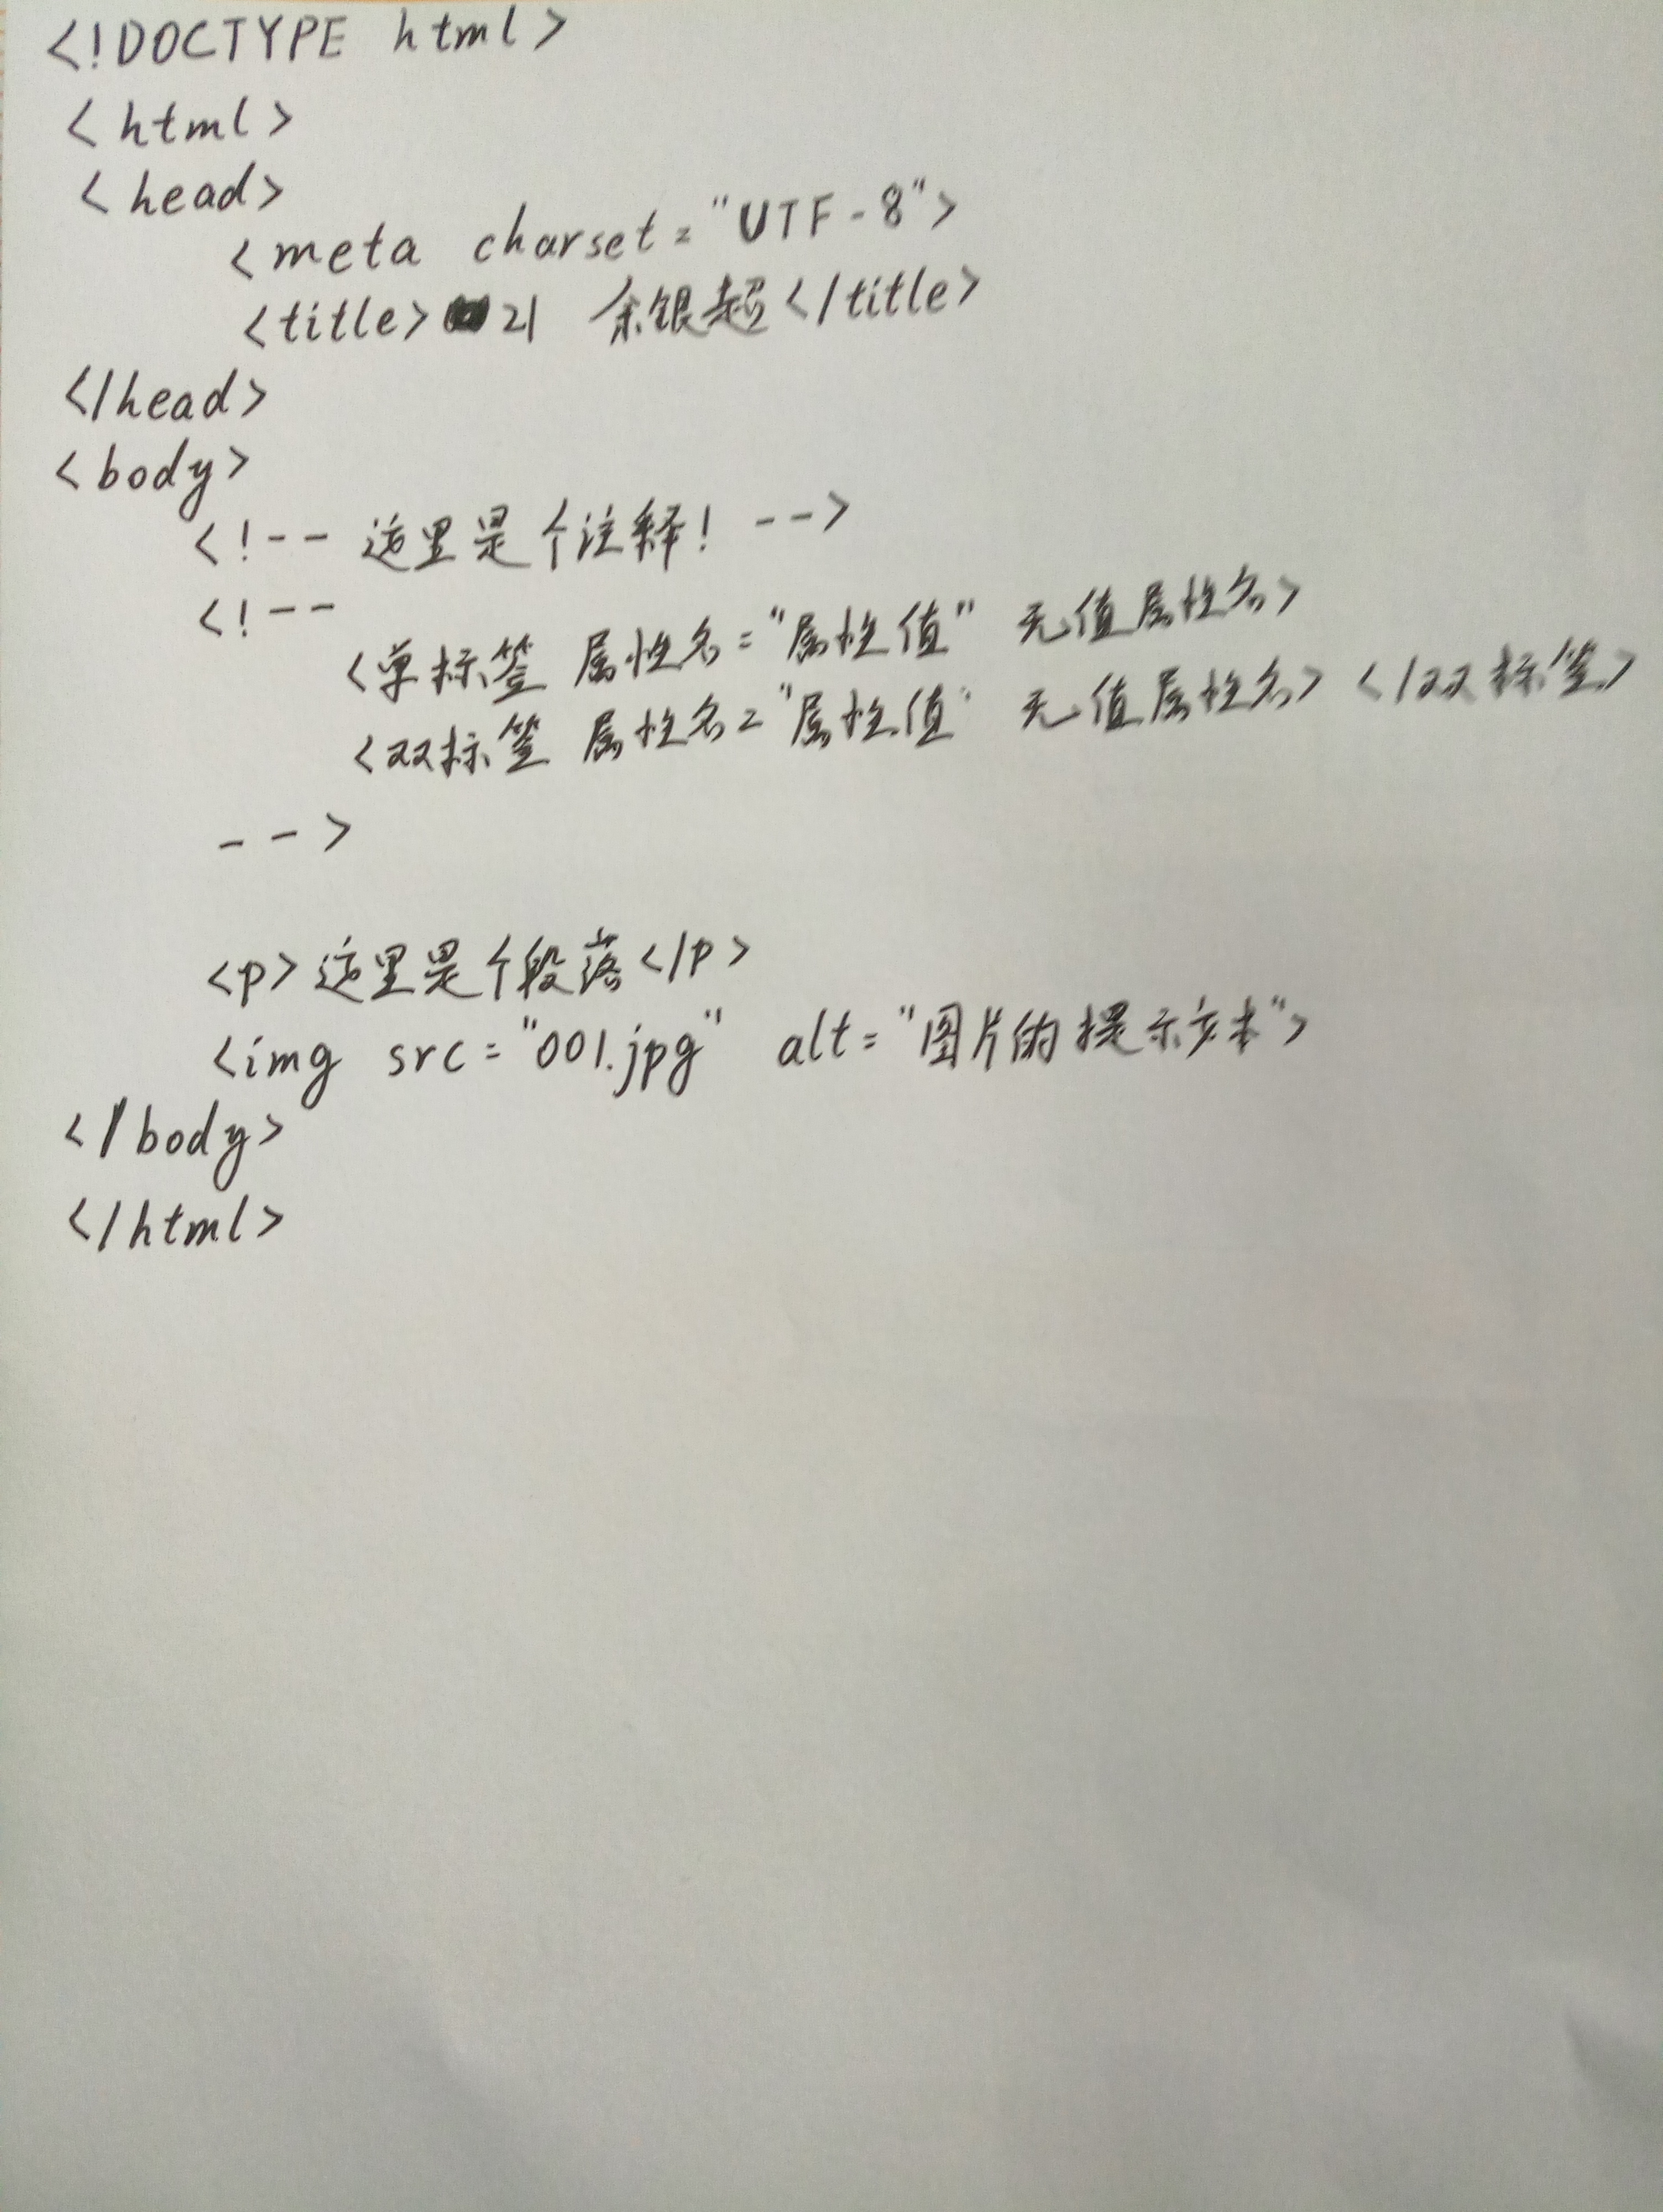 <!DOCTYPE html>
<html>
<head>
<meta charset="UTF-8">
<title>21 余银超</title>
</head>
<body>
<!-- 这里是个注释! -->
<!--
<单标签 属性名="属性值" 无值属性名>
<双标签 属性名="属性值" 无值属性名></双标签>
-->
<p>这里是个段落</p>
<img src="001.jpg" alt="图片的提示文本">
</body>
</html>